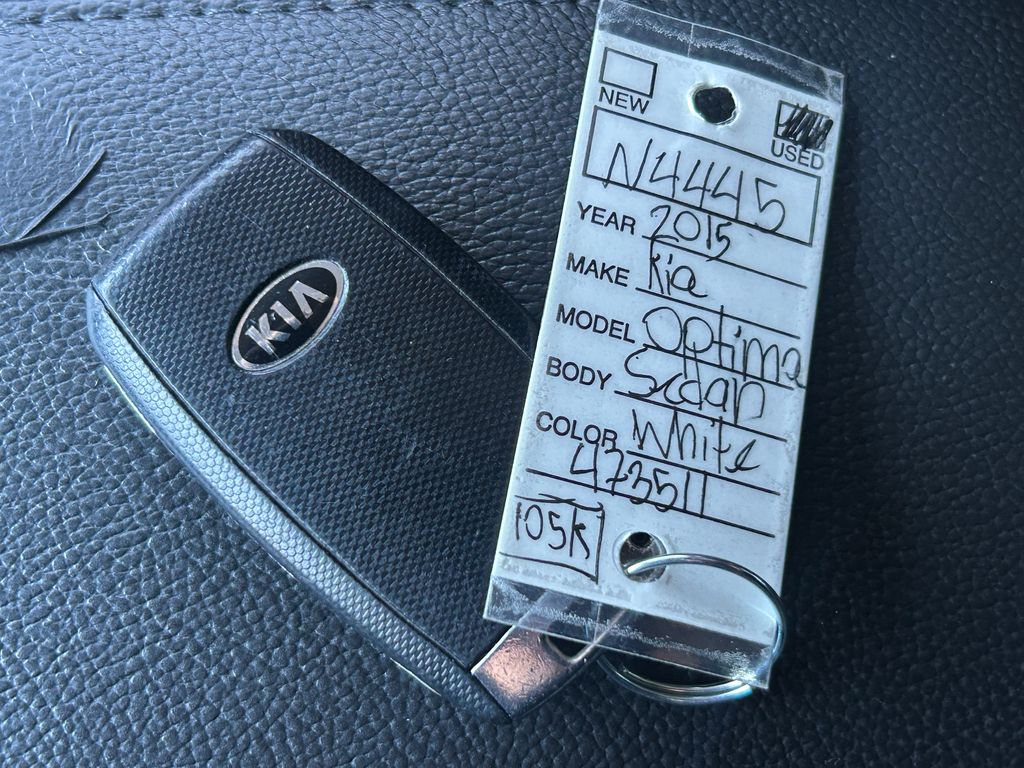 KIA
NEW
USED
N4445
YEAR 2015
MAKE Kia
MODEL Optima
BODY Sedan
COLOR White
473511
105K